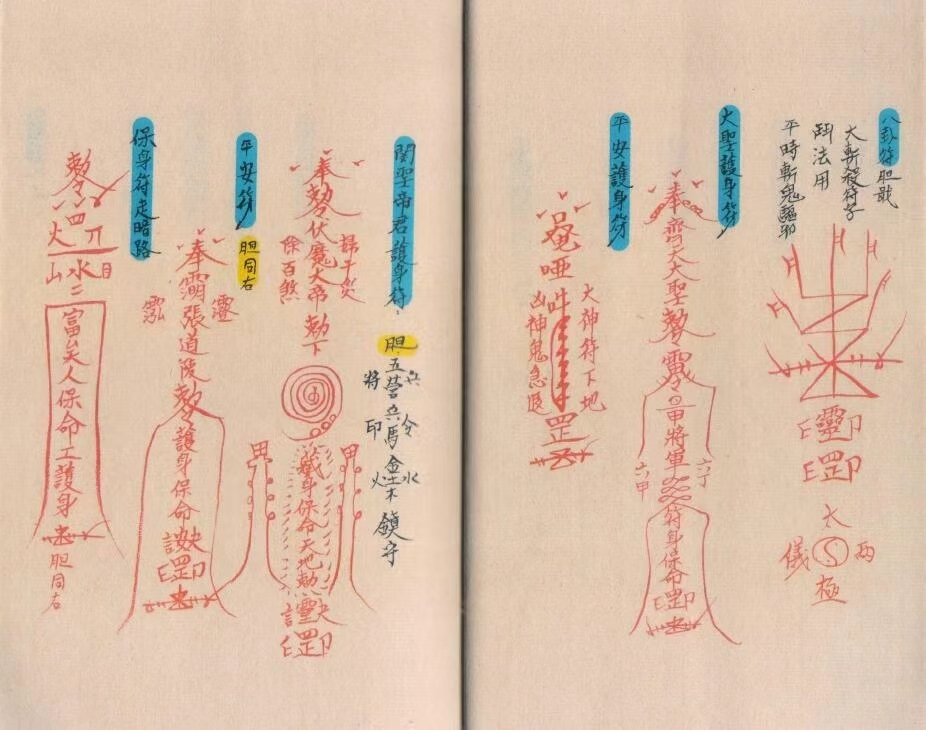 八卦符胆戳
大斬殺符字
鬥法用
平時斬鬼驅邪
靈印
罡印
太極
兩儀
大聖護身符
奉齊天大聖勅令
甲將軍
六丁
六甲
符身保命
罡印
平安護身符
唵啞吽
大神符下地
凶神鬼急退
罡
關聖帝君護身符
胆
五營兵馬
兵將
令印
金木水火土
鎮守
奉勅令伏魔大帝勅下
掃千災
除百煞
藏身保命天地勅
罡印
平安符
胆同右
奉張道陵勅令護身保命
罡印
保身符走暗路
勅令
六四
火
山水
富美人保命工護身
胆同右